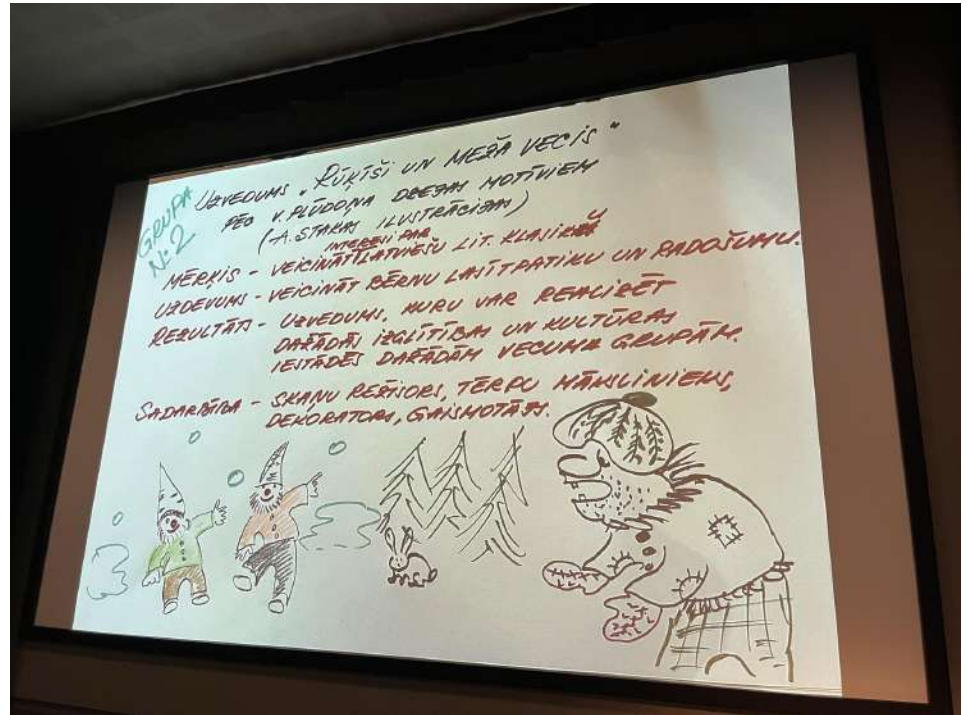 GRUPA
Nº2
UZVEDUMS „RŪĶĪŠI UN MEŽA VECIS"
PĒC V. PLŪDOŅA DZEJAS MOTĪVIEM
(A. STAKAS ILUSTRĀCIJAS)
MĒRĶIS - VEICINĀT INTERESI PAR LATVIEŠU LIT. KLASIKU
UZDEVUMS - VEICINĀT BĒRNU LASĪTPATIKU UN RADOŠUMU.
REZULTĀTS - UZVEDUMS, KURU VAR REALIZĒT
DAŽĀDĀS IZGLĪTĪBAS UN KULTŪRAS
IESTĀDĒS DAŽĀDĀM VECUMA GRUPĀM.
SADARBĪBA - SKAŅU REŽISORS, TĒRPU MĀKSLINIEKS,
DEKORATORS, GAISMOTĀJS.